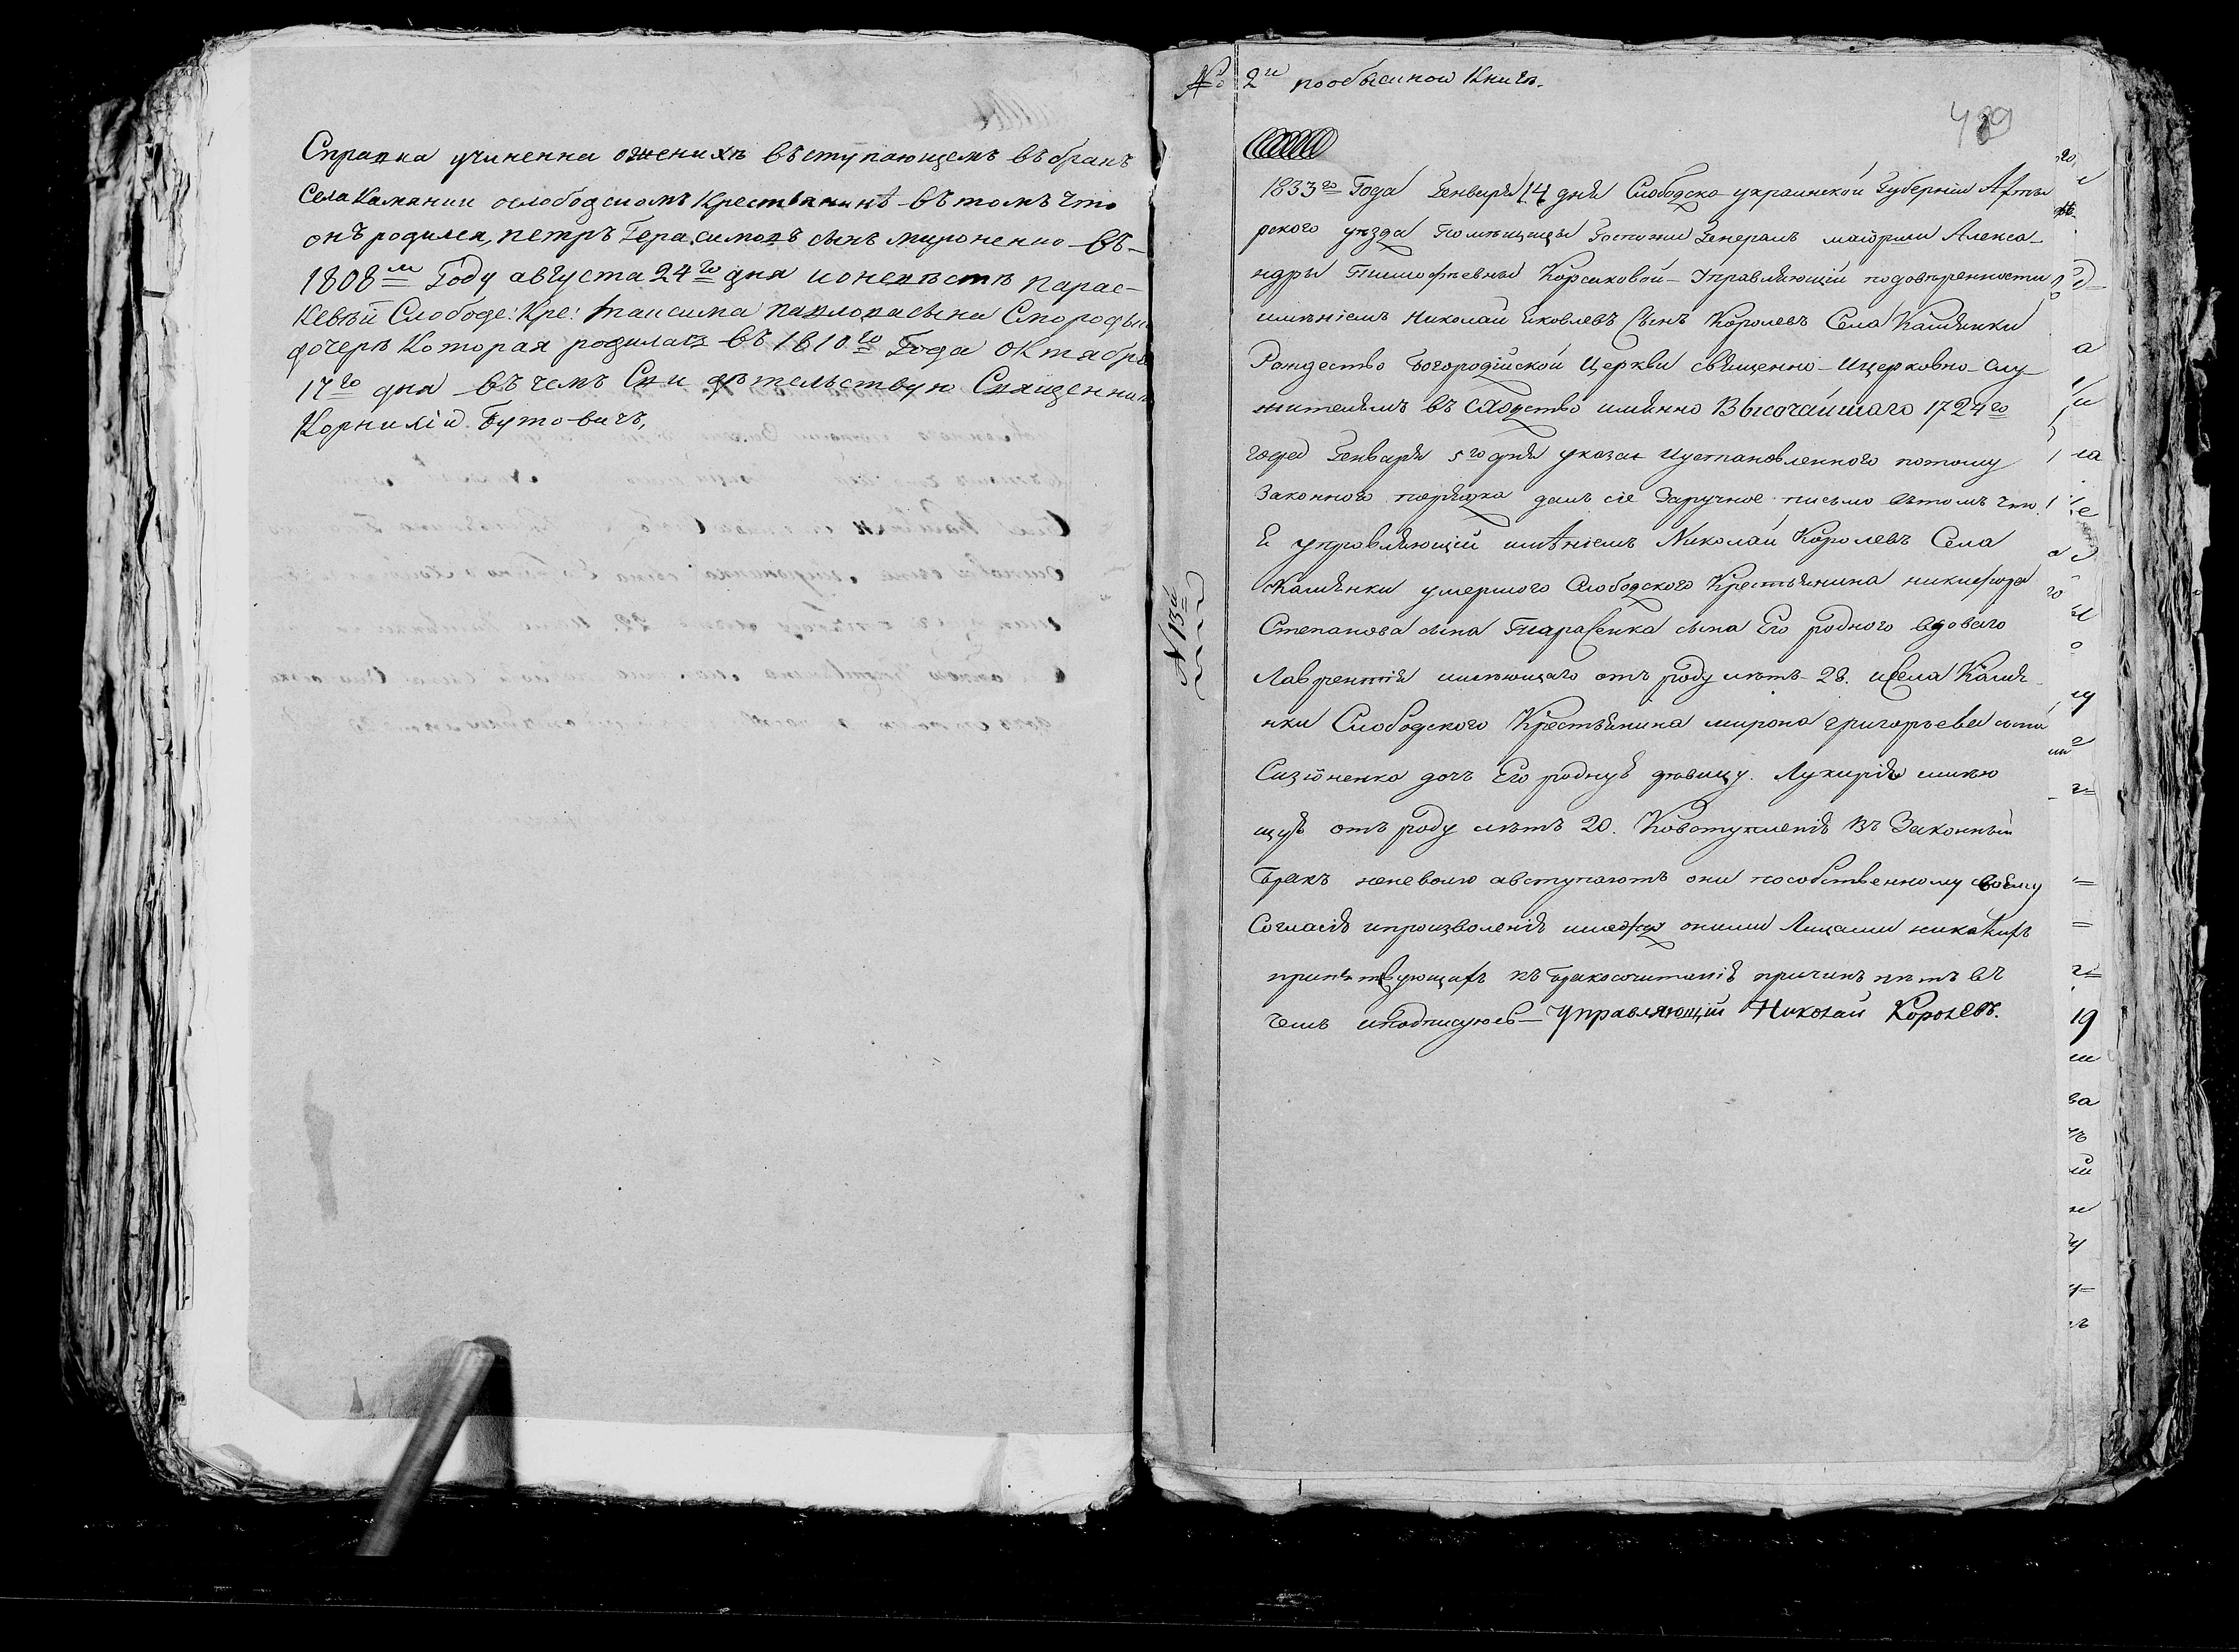 Справка учиненна ожених въступающемъ въбракъ
села Камянки ослободскомъ Крестьянинѣ вътомъ что
онъ родился, петръ Герасимовъ сынъ мироненко въ
1808м Году августа 24го дня ионевѣстѣ Парас-
кевѣи Слободс: Кре: таксима павловасына Смороды
дочерѣ Которая родилась въ 1810го Года Октября
17го дня въ чемъ Свидѣтельствую Священникъ
Корнилій Бутовичъ,
№ 2й пообыскной Книгѣ.
489
1833го Года Генваря 14 дня Слободско украинской Губерніи Ахты
рского уѣзда Помѣщицы Госпожи Генералъ маіорши Алекса-
ндры Тимофѣевны Корсиковой Управляющій подовѣренности
имѣніемъ Николай Яковлевъ Сынъ Королевъ Села Камянки
Рождество Богородійской Церкви священно-ицерковно-слу
жителямъ въ сходство имянно Высочайшаго 1724го
года Генваря 5го дня указа иустановленного потому
Законного порядка далъ сіе Заручное письмо втомъ что
Я управляющій имѣніемъ Николай Королевъ Села
Камянки умершого Слободского Крестьянина никифора
Степанова сына Тарасенка сына Его родного вдоваго
Лаврентія имѣющаго отъ роду лѣтъ 28. иСела Камя
нки Слободского Крестьянина мирона григорьева сына
Сизіоненка доч Его родную дѣвицу. Лукирію имѣю
щую отъ роду лѣтъ 20. Ковступленію Въ Законный
Бракъ неневолю авступаютъ они пособственному своему
Согласію ипроизволенію имежду оними Лицами никакихъ
препятствующихъ къ бракосочитанію причинъ нѣтъ въ
чемъ иПодписуюсь Управляющій Николай Королевъ.
№ 13й